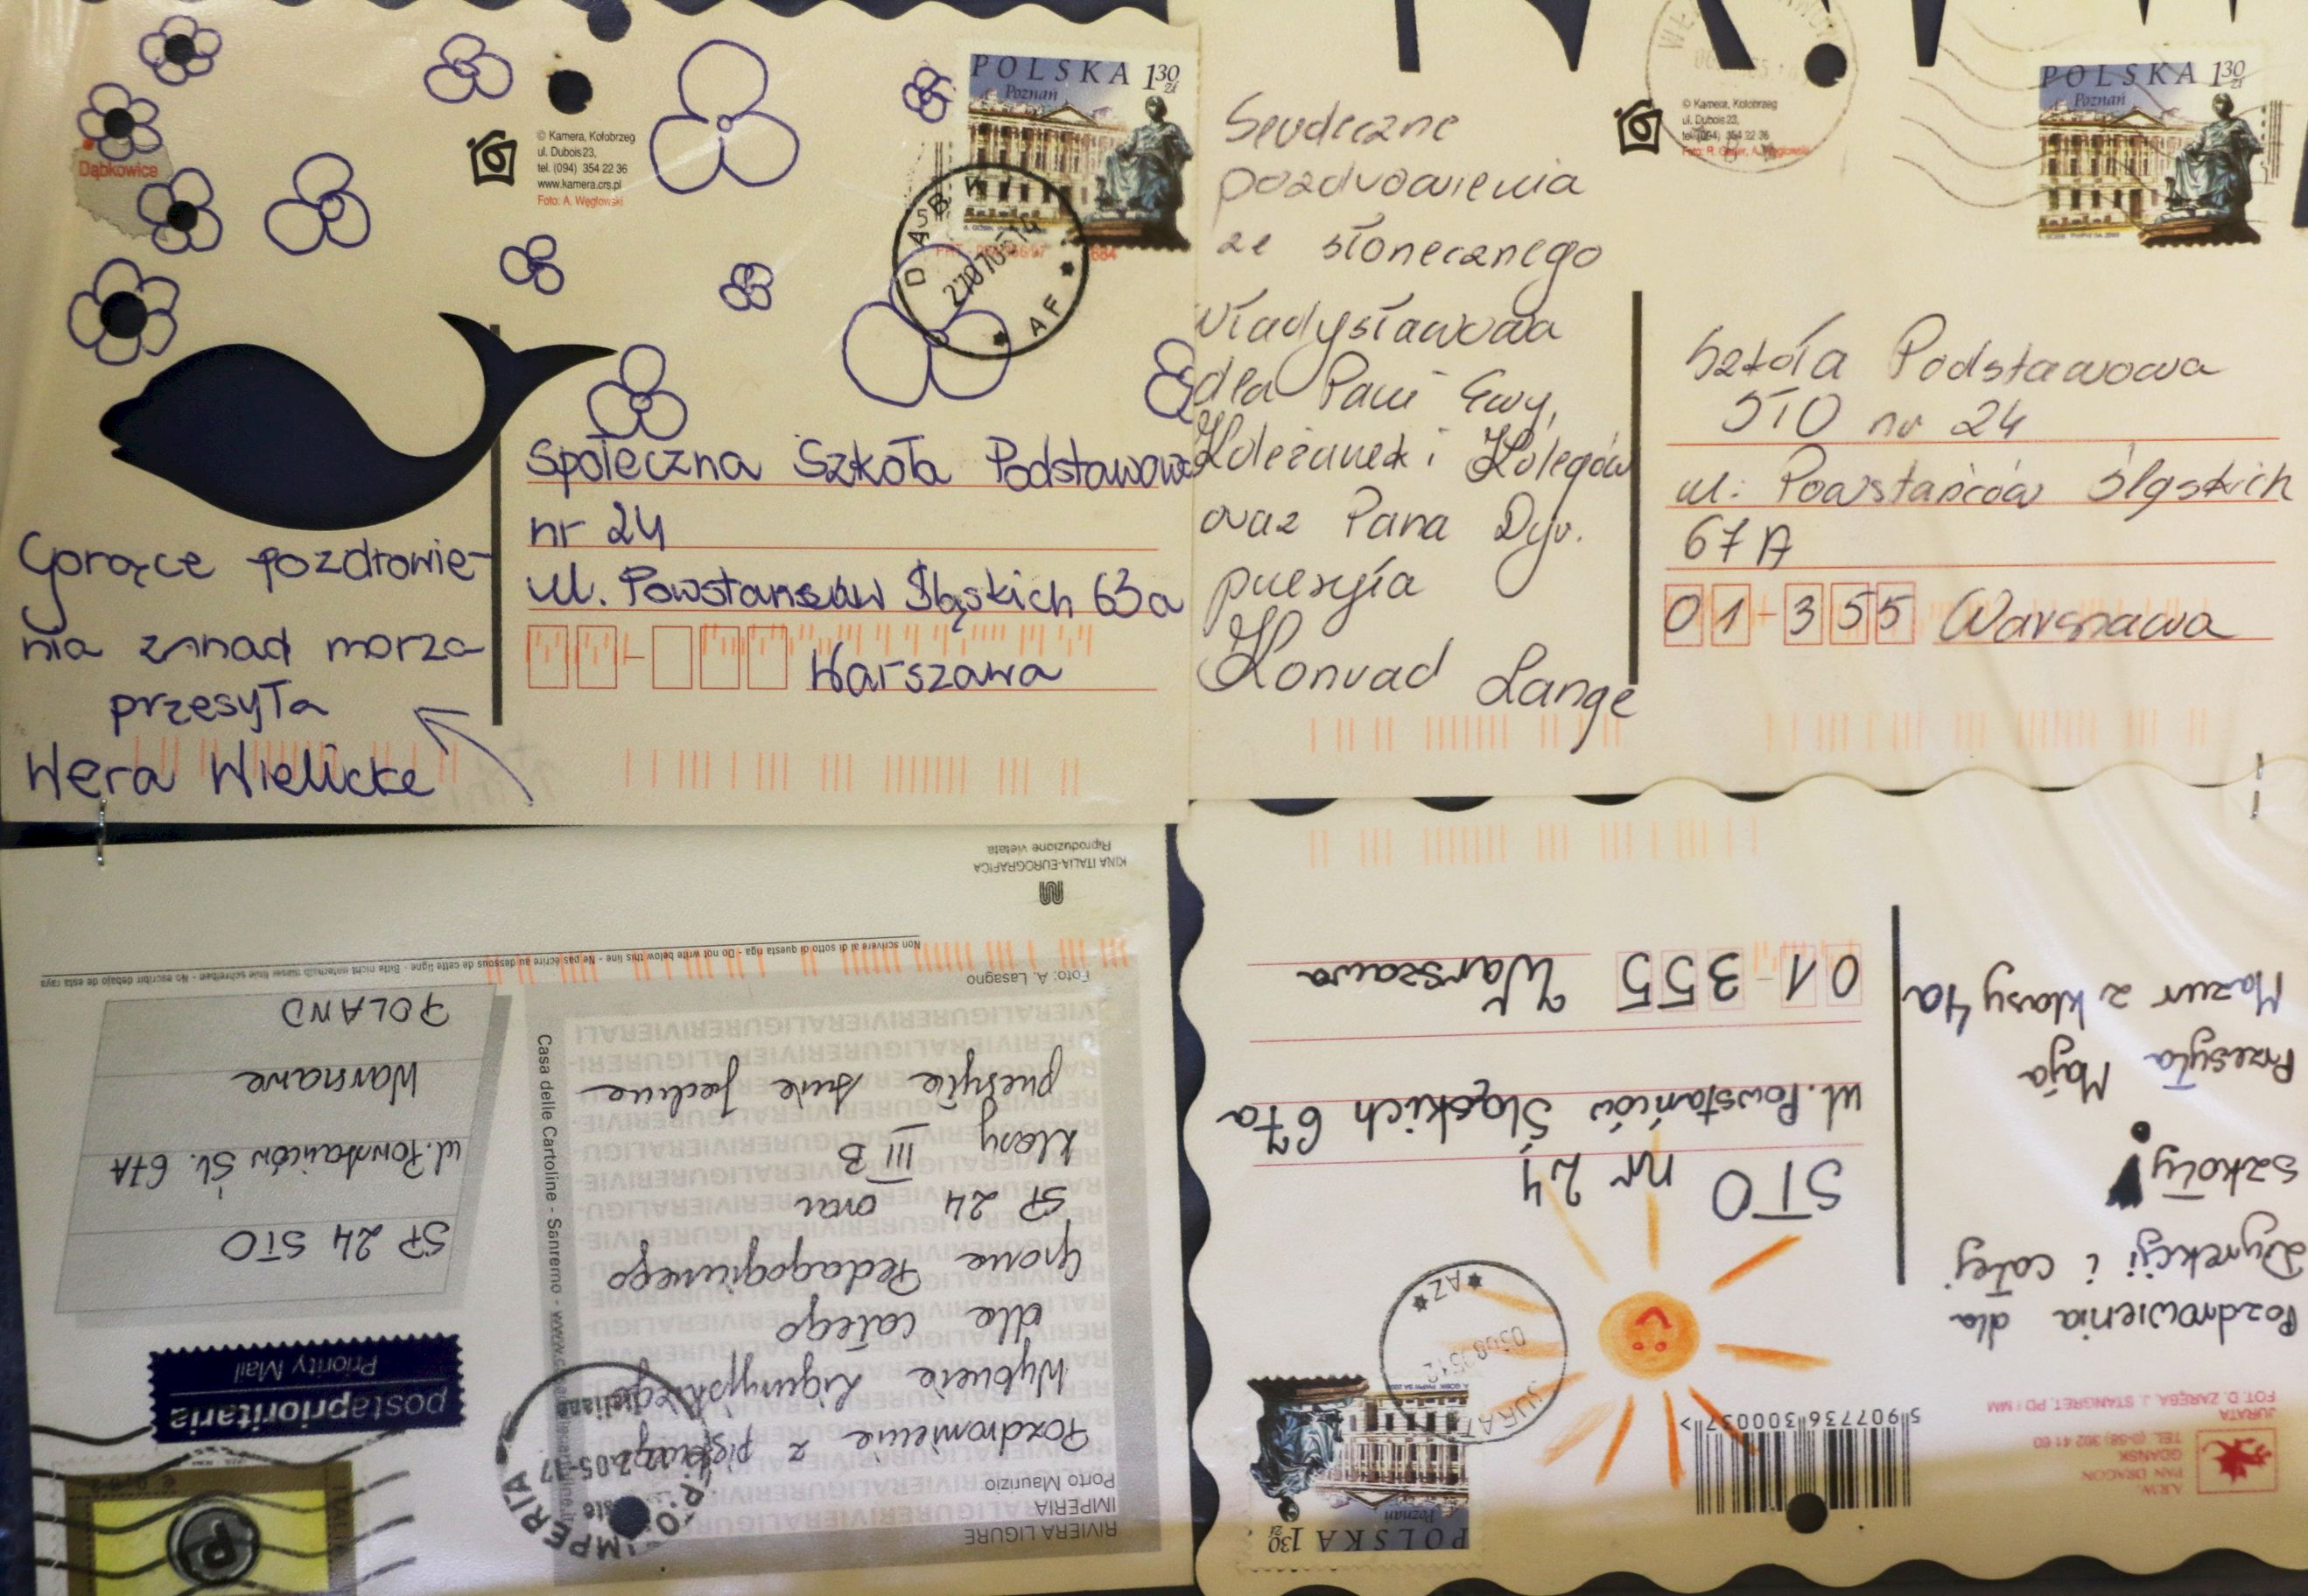 Dąbkowice
© Kamera, Kołobrzeg
ul. Dubois 23,
tel. (094) 354 22 36
www.kamera.crs.pl
Foto: A. Węgłowski
POLSKA 130 zł
Poznań
AF
Gorące pozdrowie-
nia znad morza
przesyła
Wera Wielicke
Społeczna Szkoła Podstawowa
nr 24
ul. Powstańców Śląskich 63a
Warszawa
© Kamera, Kołobrzeg
ul. Dubois 23,
tel. (094) 354 22 36
POLSKA 130 zł
Poznań
Serdeczne
pozdrowienia
ze słonecznego
Władysławowa
dla Pani Ewy,
Koleżanek i Kolegów
oraz Pana Dyr.
przesyła
Konrad Lange
Szkoła Podstawowa
STO nr 24
ul. Powstańców Śląskich
67A
01-355 Warszawa
RIVIERA LIGURE
IMPERIA
Porto Maurizio
Pozdrowienie z pięknego
Wybrzeże Liguryjskiego
dla całego
Grona Pedagogicznego
SP 24 oraz
klasy III B
przesyła
Foto: A. Lasagno
Casa delle Cartoline - Sanremo -
postaprioritaria
Priority Mail
SP 24 STO
ul. Powstańców Śl. 67A
Warszawa
POLAND
Non scrivere al di sotto di questa riga - Do not write below this line - Ne pas écrire au dessous de cette ligne - Bitte nicht unterhalb dieser linie schreiben - No escribir debajo de esta raya
KINA ITALIA-EUROGRAFICA
Riproduzione vietata
A.R.W.
PAN DRAGON
GDAŃSK
TEL. (0-58) 302 41 60
JURATA
FOT. D. ZARĘBA, J. STANGRET, PD / MM
5 907736 300037 >
POLSKA 130 zł
Poznań
JURATA
AZ
Pozdrowienia dla
Dyrekcji i całej
szkoły!
Przesyła Maja
Mazur z klasy 4a
STO nr 24
ul. Powstańców Śląskich 67a
01-355 Warszawa